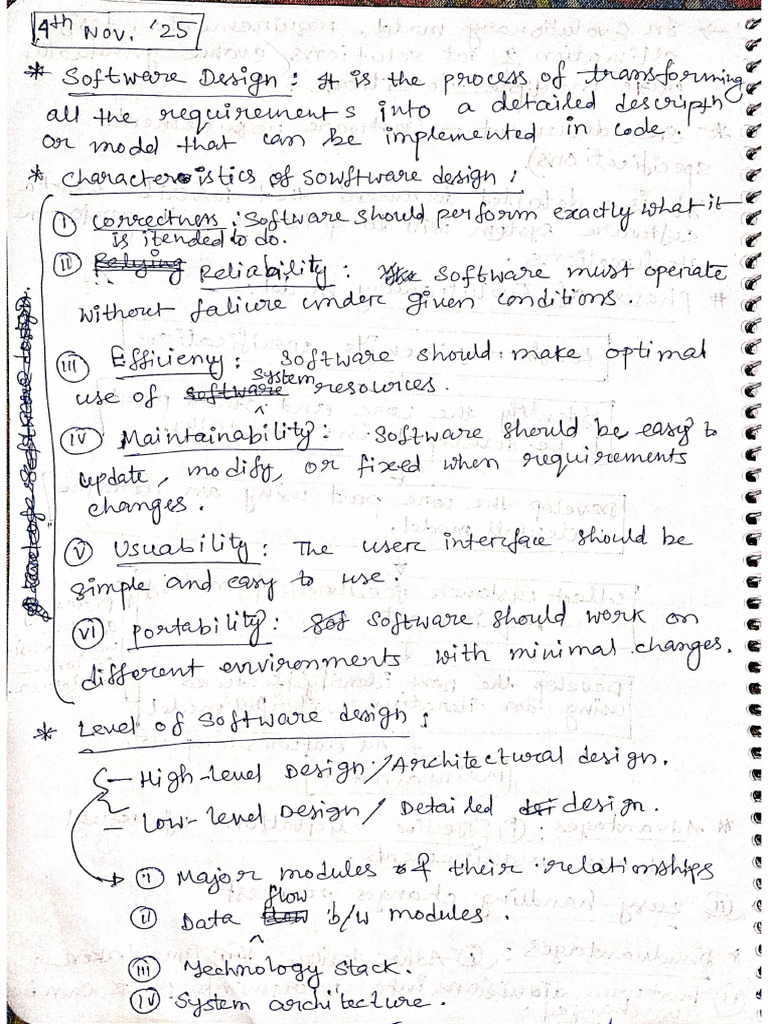 4th Nov. '25
* Software Design : It is the process of transforming
all the requirements into a detailed descriptn
or model that can be implemented in code.
* Characteristics of Sowftware design :
(i) Correctness : Software should perform exactly what it
is itended to do.
(ii) Reliability : Software must operate
without falicure under given conditions.
(iii) Efficieny : Software should make optimal
use of system resources.
(iv) Maintainability : Software should be easy to
update, modify, or fixed when requirements
changes.
(v) Usuability : The user interface should be
simple and easy to use.
(vi) Portability : Software should work on
different environments with minimal changes.
* Level of Software design :
– High-level Design / Architectural design.
– Low-level Design / Detailed design.
(i) Major modules & their relationships
(ii) Data flow b/w modules.
(iii) Technology stack.
(iv) System architecture.